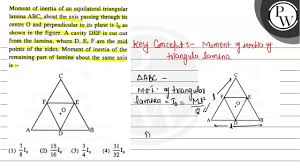 Moment of inertia of an equilateral triangular
lamina ABC, about the axis passing through its
centre O and perpendicular to its plane is I₀ as
shown in the figure. A cavity DEF is cut out
from the lamina, where D, E, F are the mid
points of the sides. Moment of inertia of the
remaining part of lamina about the same axis
is :-
C
F
E
O
(A)
D
B
(1) 7/8 I₀ (2) 15/16 I₀ (3) 3/4 I₀ (4) 31/32 I₀
Key Concepts - Moment of inertia of
triangular lamina
ΔABC -
M.O.I of triangular
lamina = I₀ =
C
F
E
O
A
D
B